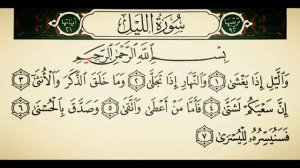 سُورَةُ اللَّيْلِ
بِسْمِ اللَّهِ الرَّحْمَٰنِ الرَّحِيمِ
وَالَّيْلِ إِذَا يَغْشَىٰ ١ وَالنَّهَارِ إِذَا تَجَلَّىٰ ٢ وَمَا خَلَقَ الذَّكَرَ وَالْأُنثَىٰ ٣
إِنَّ سَعْيَكُمْ لَشَتَّىٰ ٤ فَأَمَّا مَنْ أَعْطَىٰ وَاتَّقَىٰ ٥ وَصَدَّقَ بِالْحُسْنَىٰ ٦
فَسَنُيَسِّرُهُ لِلْيُسْرَىٰ ٧